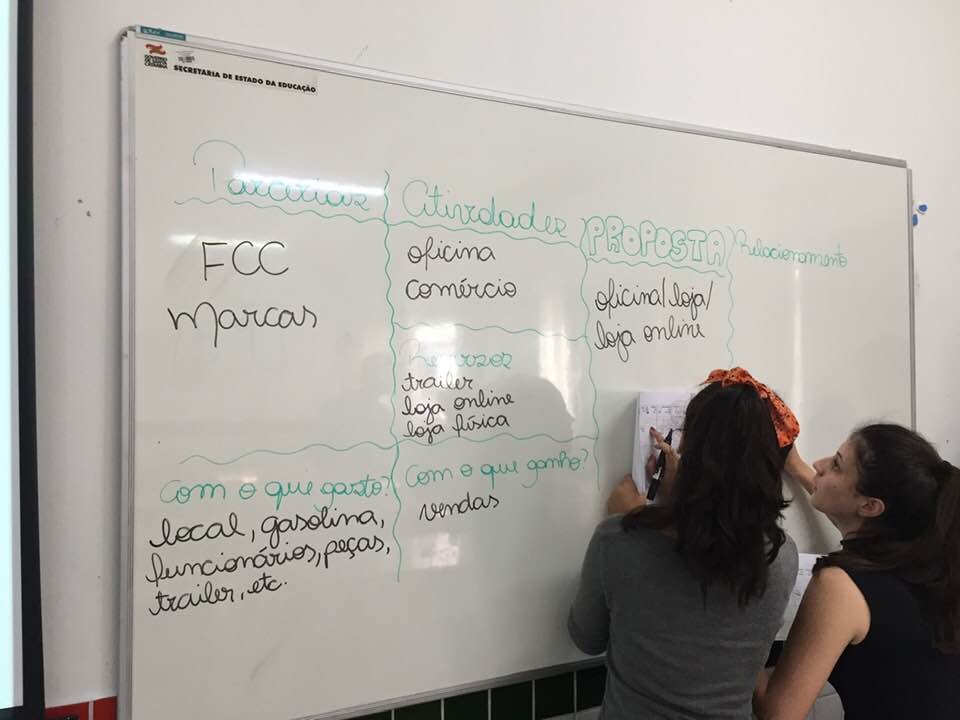 SECRETARIA DE ESTADO DA EDUCAÇÃO
Parcerias
FCC
Marcas
Atividades
oficina
comércio
Recursos
trailer
loja online
loja física
PROPOSTA
oficina/loja/
loja online
Relacionamento
Com o que gasto?
local, gasolina,
funcionários, peças,
trailer, etc.
Com o que ganho?
vendas